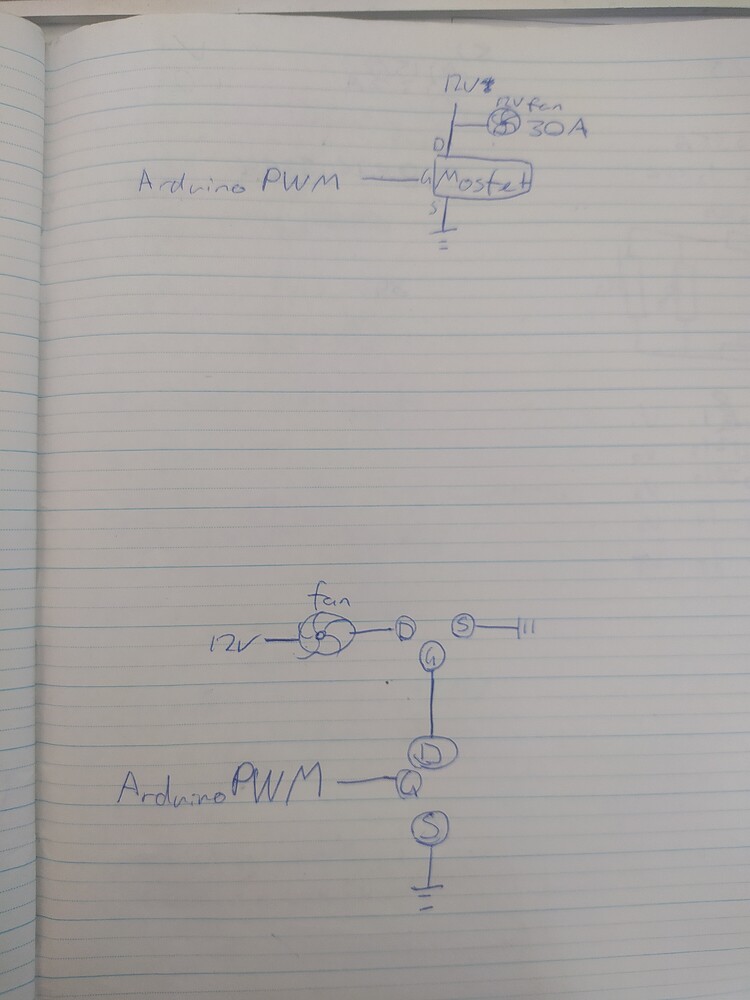 12V
12V fan
30A
D
Arduino PWM G Mosfet
S
fan
12V D S
G
D
Arduino PWM G
S